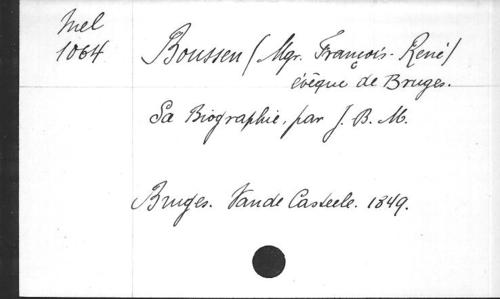 Mel
1064
Boussen (Mgr. François-René)
évêque de Bruges.
Sa Biographie, par J. B. M.
Bruges. Vande Casteele. 1849.